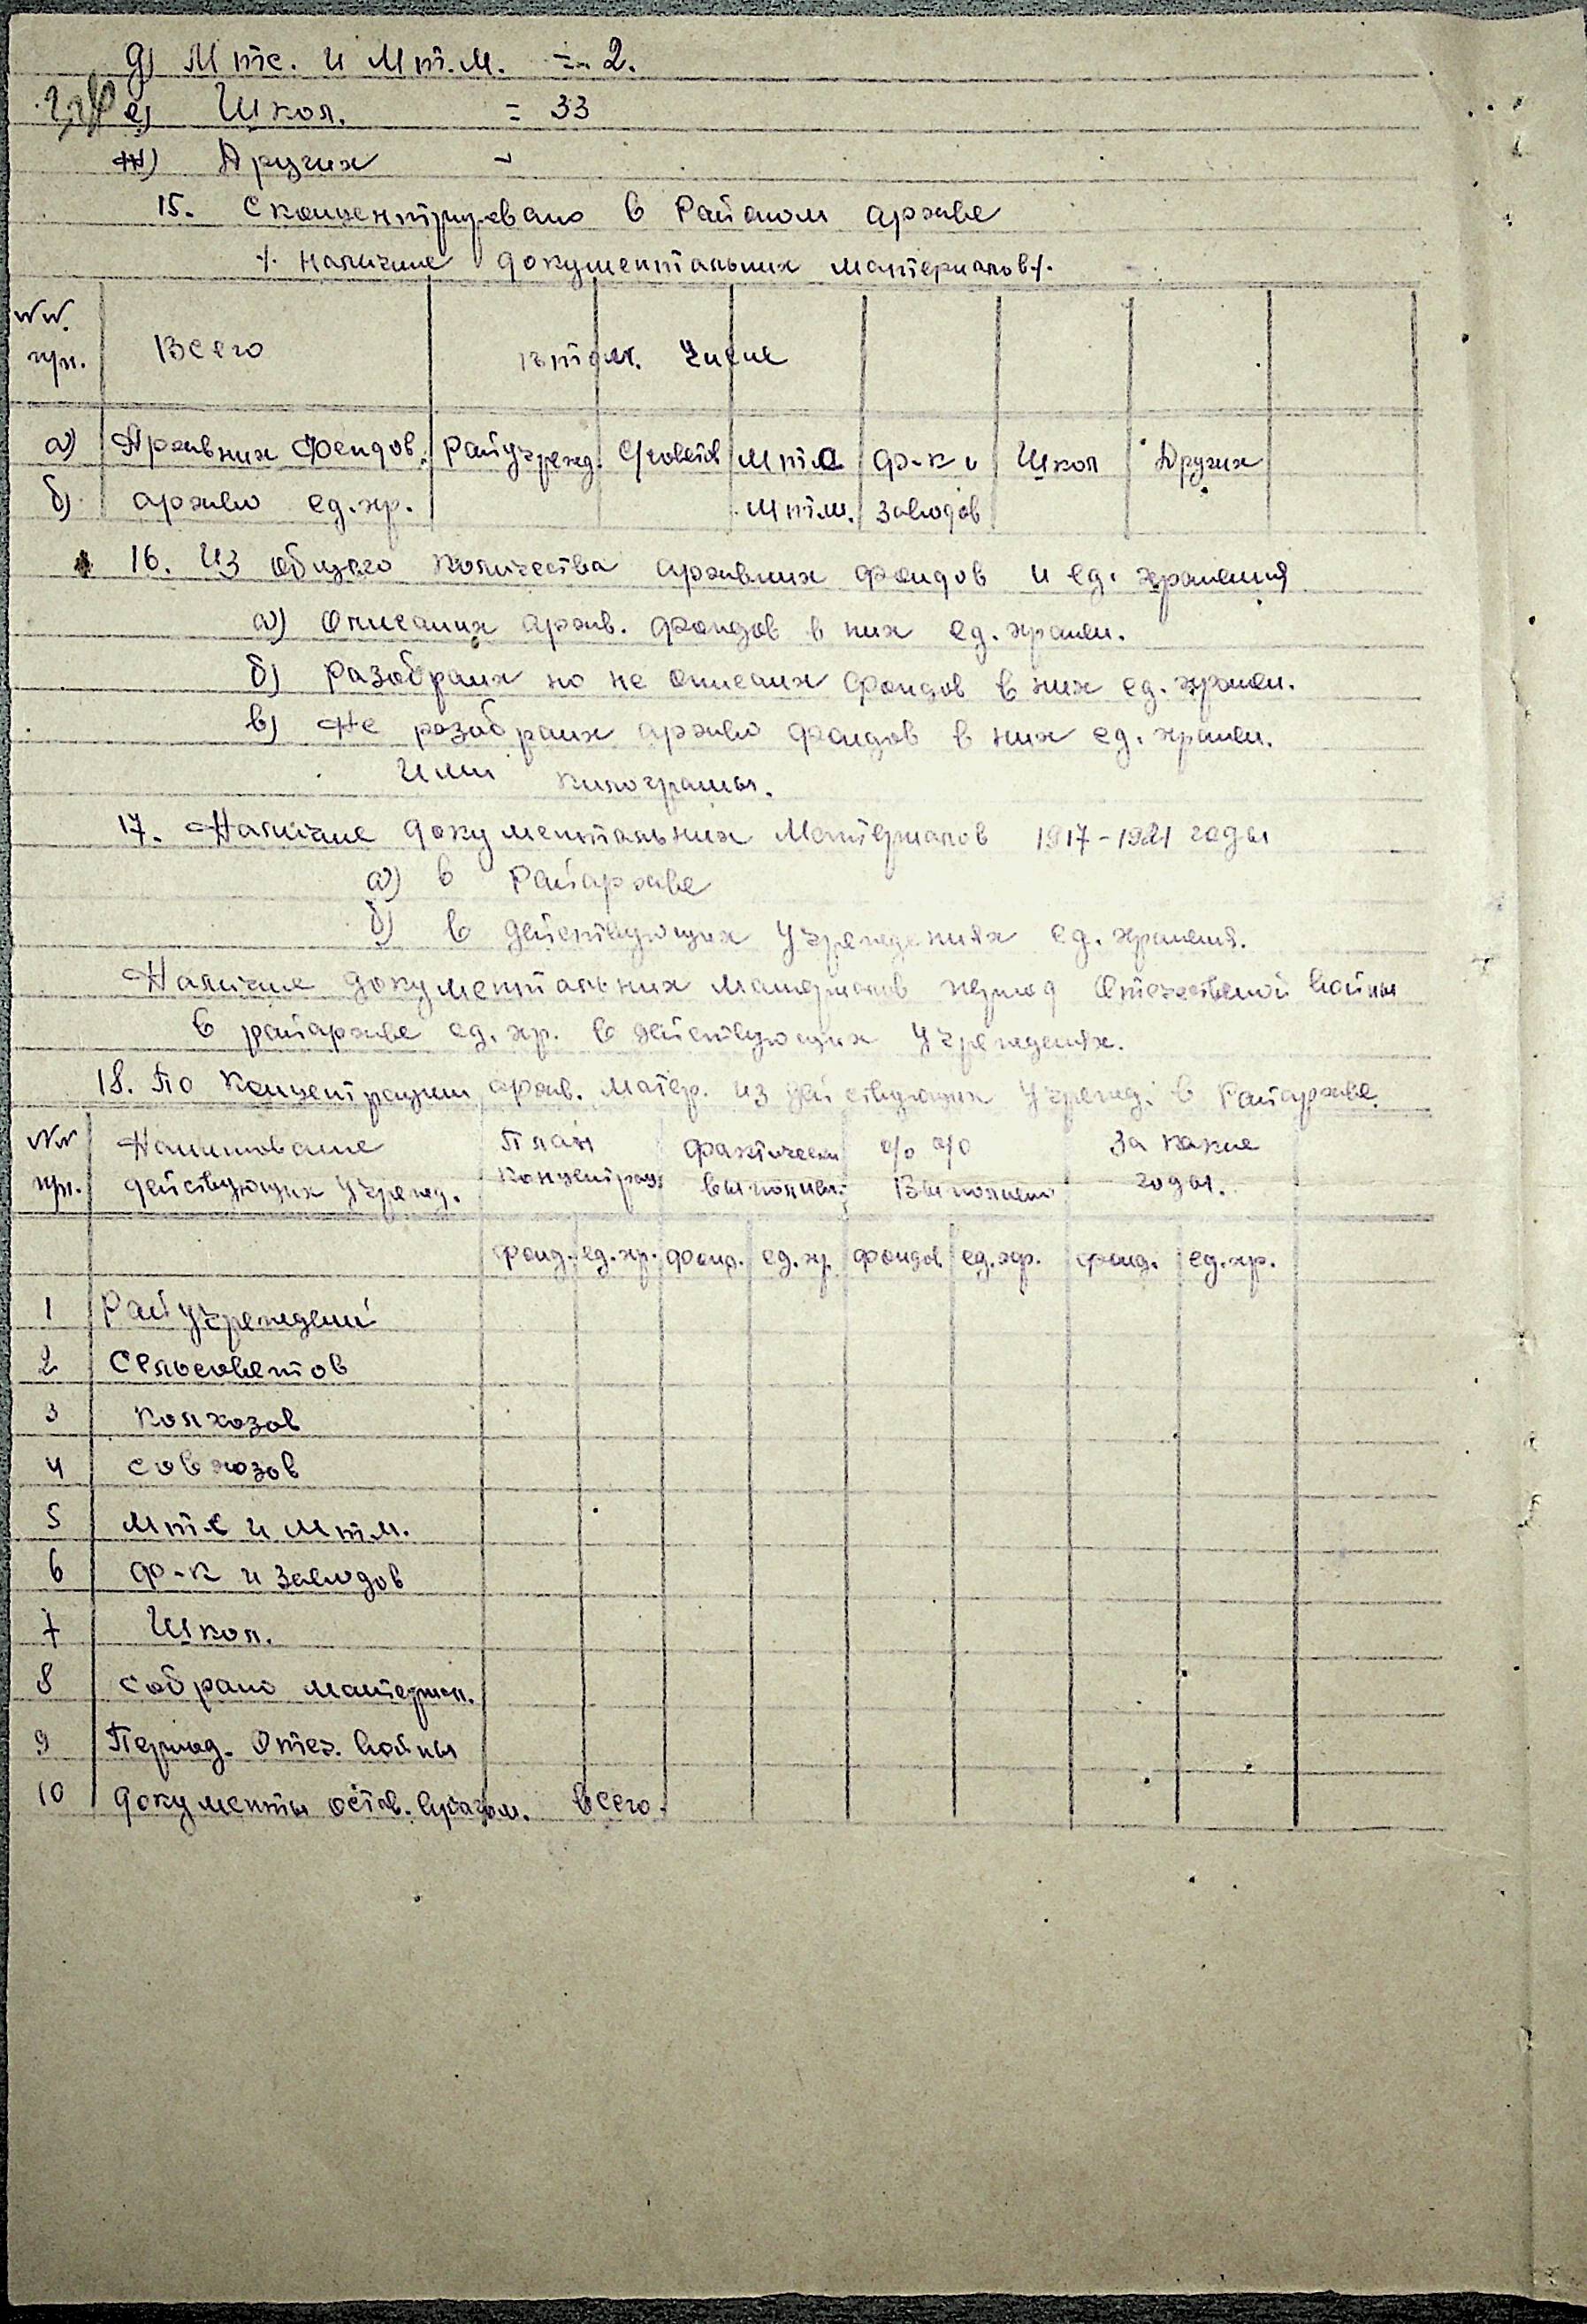 д) Мтс. и Мт.м. = 2.
е) Школ. = 33
ж) Других -
15. Сконцентрировано в Райаном архиве
/. наличие документальних материалов /.
NN. Всего в том. числе
пп.
а) Архивних Фондов. Райучрежд. С/советов Мтс ф-к и Школ Других
б) архиво ед. хр. Мтм. заводов
16. Из общего количества архивних фондов и ед. хранения
а) Описаних архив. фондов в них ед. хранен.
б) Разобраих но не описаих фондов в них ед. хранен.
в) Не разобраих архиво фондов в них ед. хранен.
Или килограмы.
17. Наличие документальних Материалов 1917-1921 годы
а) в Райархиве
б) в действующих учреждениях ед. хранения.
Наличие документальних материалов период Отечественой войны
в райархиве ед. хр. в действующих учреждениях.
18. По Концентрации архив. матер. из действующих учрежд. в Райархиве.
NN Наименование План фактически % % За какие
пп. действующих учрежд. концентрац. выполнен. Выполнено годы.
фонд. ед. хр. фонд. ед. хр. фондов ед. хр. фонд. ед. хр.
1 Райучреждений
2 Сельсоветов
3 Колхозов
4 совхозов
5 мтс и мт.м.
6 ф-к и заводов
7 Школ.
8 собрано материал.
9 Период. Отеч. войны
10 документы остав. врагом. всего.